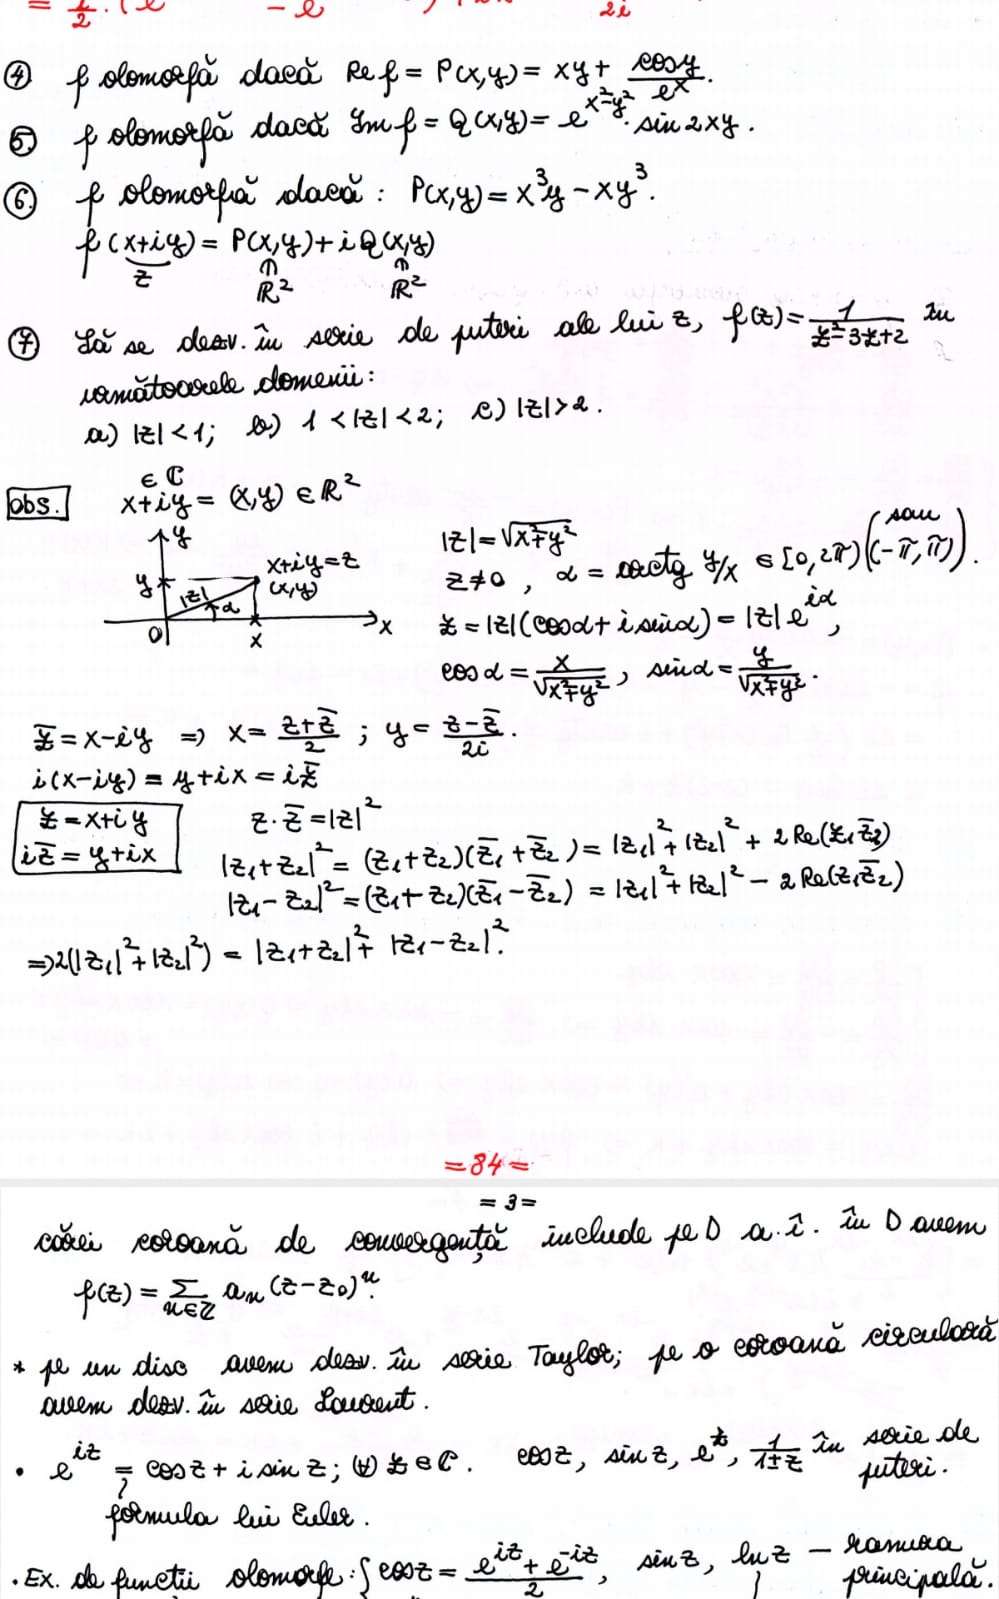 = 1/2 · (e - e ) 2i
④ f olomorfă dacă Re f = P(x,y) = xy + cosy/e^x.
⑤ f olomorfă dacă Im f = Q(x,y) = e^(x²-y²) · sin 2xy.
⑥ f olomorfă dacă : P(x,y) = x³y - xy³.
f(x+iy) = P(x,y) + i Q(x,y)
z ⇑ ⇑
ℝ² ℝ²
⑦ Să se dezv. în serie de puteri ale lui z, f(z) = 1/(z²-3z+2) în
următoarele domenii :
a) |z| < 1; b) 1 < |z| < 2; c) |z| > 2.
obs. x+iy = (x,y) ∈ ℝ²
∈ ℂ
y
y x+iy = z
(x,y)
|z| α
0 x x
|z| = √(x²+y²)
z ≠ 0, α = arctg y/x ∈ [0, 2π) (sau (-π, π)).
z = |z| (cos α + i sin α) = |z| e^(iα),
cos α = x/√(x²+y²), sin α = y/√(x²+y²).
z̄ = x-iy ⇒ x = (z+z̄)/2 ; y = (z-z̄)/2i.
i(x-iy) = y+ix = iz̄
z = x+iy
iz̄ = y+ix
z · z̄ = |z|²
|z₁+z₂|² = (z₁+z₂)(z̄₁+z̄₂) = |z₁|² + |z₂|² + 2Re(z₁z̄₂)
|z₁-z₂|² = (z₁+z₂)(z̄₁-z̄₂) = |z₁|² + |z₂|² - 2Re(z₁z̄₂)
⇒ 2(|z₁|² + |z₂|²) = |z₁+z₂|² + |z₁-z₂|².
= 84 =
= 3 =
cărei coroană de convergență include pe D a.î. în D avem
f(z) = Σ_(n∈ℤ) aₙ (z-z₀)ⁿ.
* pe un disc avem dezv. în serie Taylor; pe o coroană circulară
avem dezv. în serie Laurent.
• e^(iz) = cos z + i sin z; (∀) z ∈ ℂ. cos z, sin z, e^z, 1/(1±z) în serie de puteri.
formula lui Euler.
• Ex. de funcții olomorfe: { cos z = (e^(iz) + e^(-iz))/2, sin z, ln z - ramura principală.